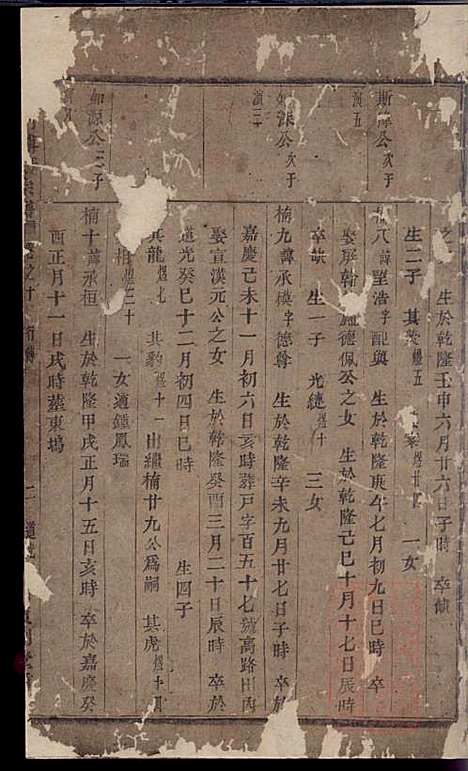 斯 公次于
演五
公次于
演三十
如源公三子
生於乾隆壬申六月廿六日子時 卒缺
生二子 其 煜五 煜廿四 一女
八諱聖浩字 配與 生於乾隆庚午七月初九日巳時 卒
娶 德佩公之女 生於乾隆己巳十月十七日辰時
卒缺 生一子 光縺煜十 三女
楠九諱承模字德尊 生於乾隆辛未九月廿七日子時 卒於
嘉慶己未十一月初六日亥時葬戸字百五十七號高路田內
娶宣漢元公之女 生於乾隆癸酉三月二十日辰時 卒於
道光癸巳十二月初四日巳時 生四子
其龍煜七 其豹煜十一出繼楠廿九公為嗣 其虎煜十四
相煜二十 一女適鍾鳳瑞
楠十諱承桓 生於乾隆甲戌正月十五日亥時 卒於嘉慶癸
酉正月十一日戌時葬東塢